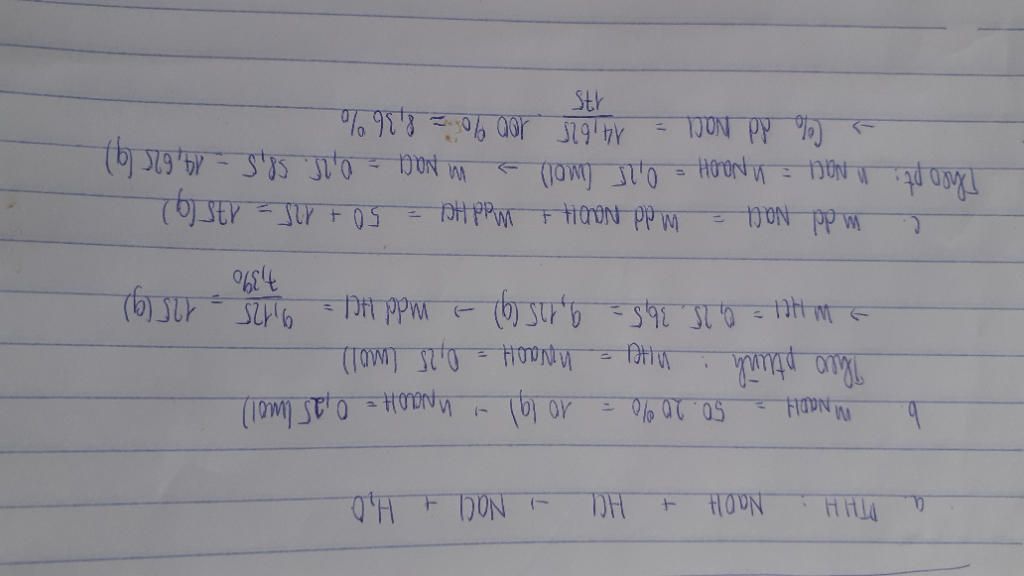 a. PTHH : NaOH + HCl → NaCl + H₂O
b. mNaOH = 50.20% = 10 (g) → nNaOH = 0,25 (mol)
Theo ptrình : nHCl = nNaOH = 0,25 (mol)
→ mHCl = 0,25. 36,5 = 9,125 (g) → mddHCl = 9,125/7,3% = 125 (g)
c. mdd NaCl = mdd NaOH + mddHCl = 50 + 125 = 175 (g)
Theo pt: nNaCl = nNaOH = 0,25 (mol) → mNaCl = 0,25. 58,5 = 14,625 (g)
→ C% dd NaCl = 14,625/175 . 100% = 8,36%